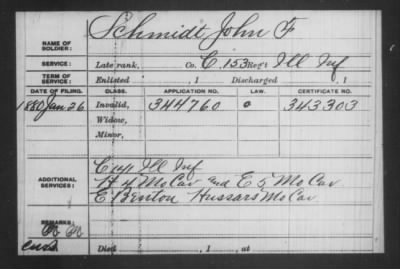 Schmidt, John F
NAME OF SOLDIER:
SERVICE: Late rank, Co. C, 153 Reg't Ill Inf
TERM OF SERVICE: Enlisted , 1 Discharged , 1
DATE OF FILING. CLASS. APPLICATION NO. LAW. CERTIFICATE NO.
1880 Jan. 26 Invalid, 344760 343303
Widow,
Minor,
C 141 Ill Inf
ADDITIONAL SERVICES: H 4 Mo Cav and E 5 Mo Cav
E Benton Hussars Mo Cav
REMARKS:
Died , 1 , at